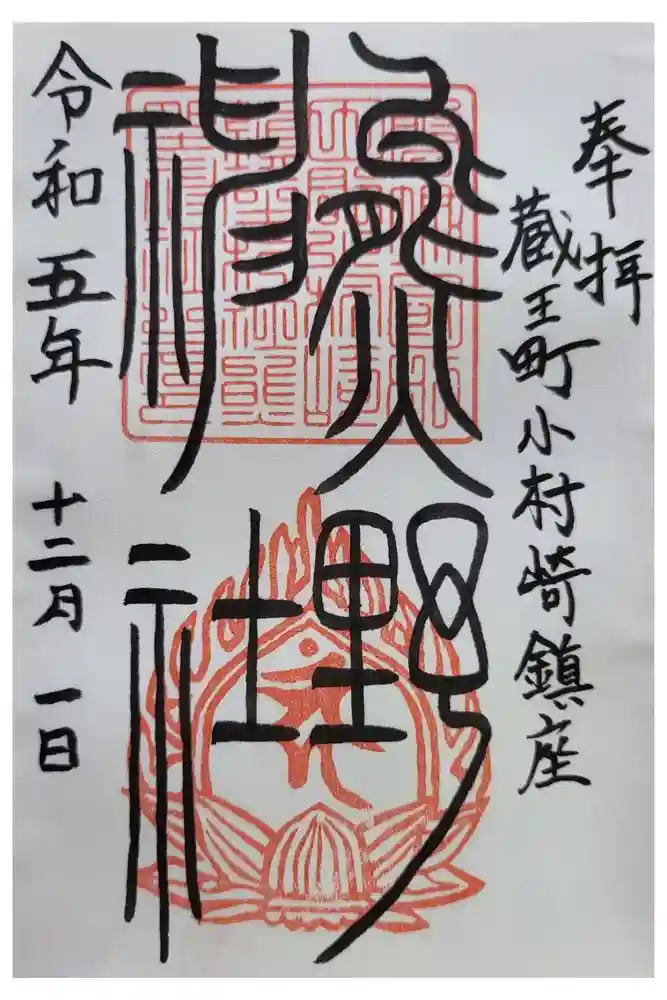 奉拝
蔵王町小村崎鎮座
熊野
神社
令和五年 十二月 一日